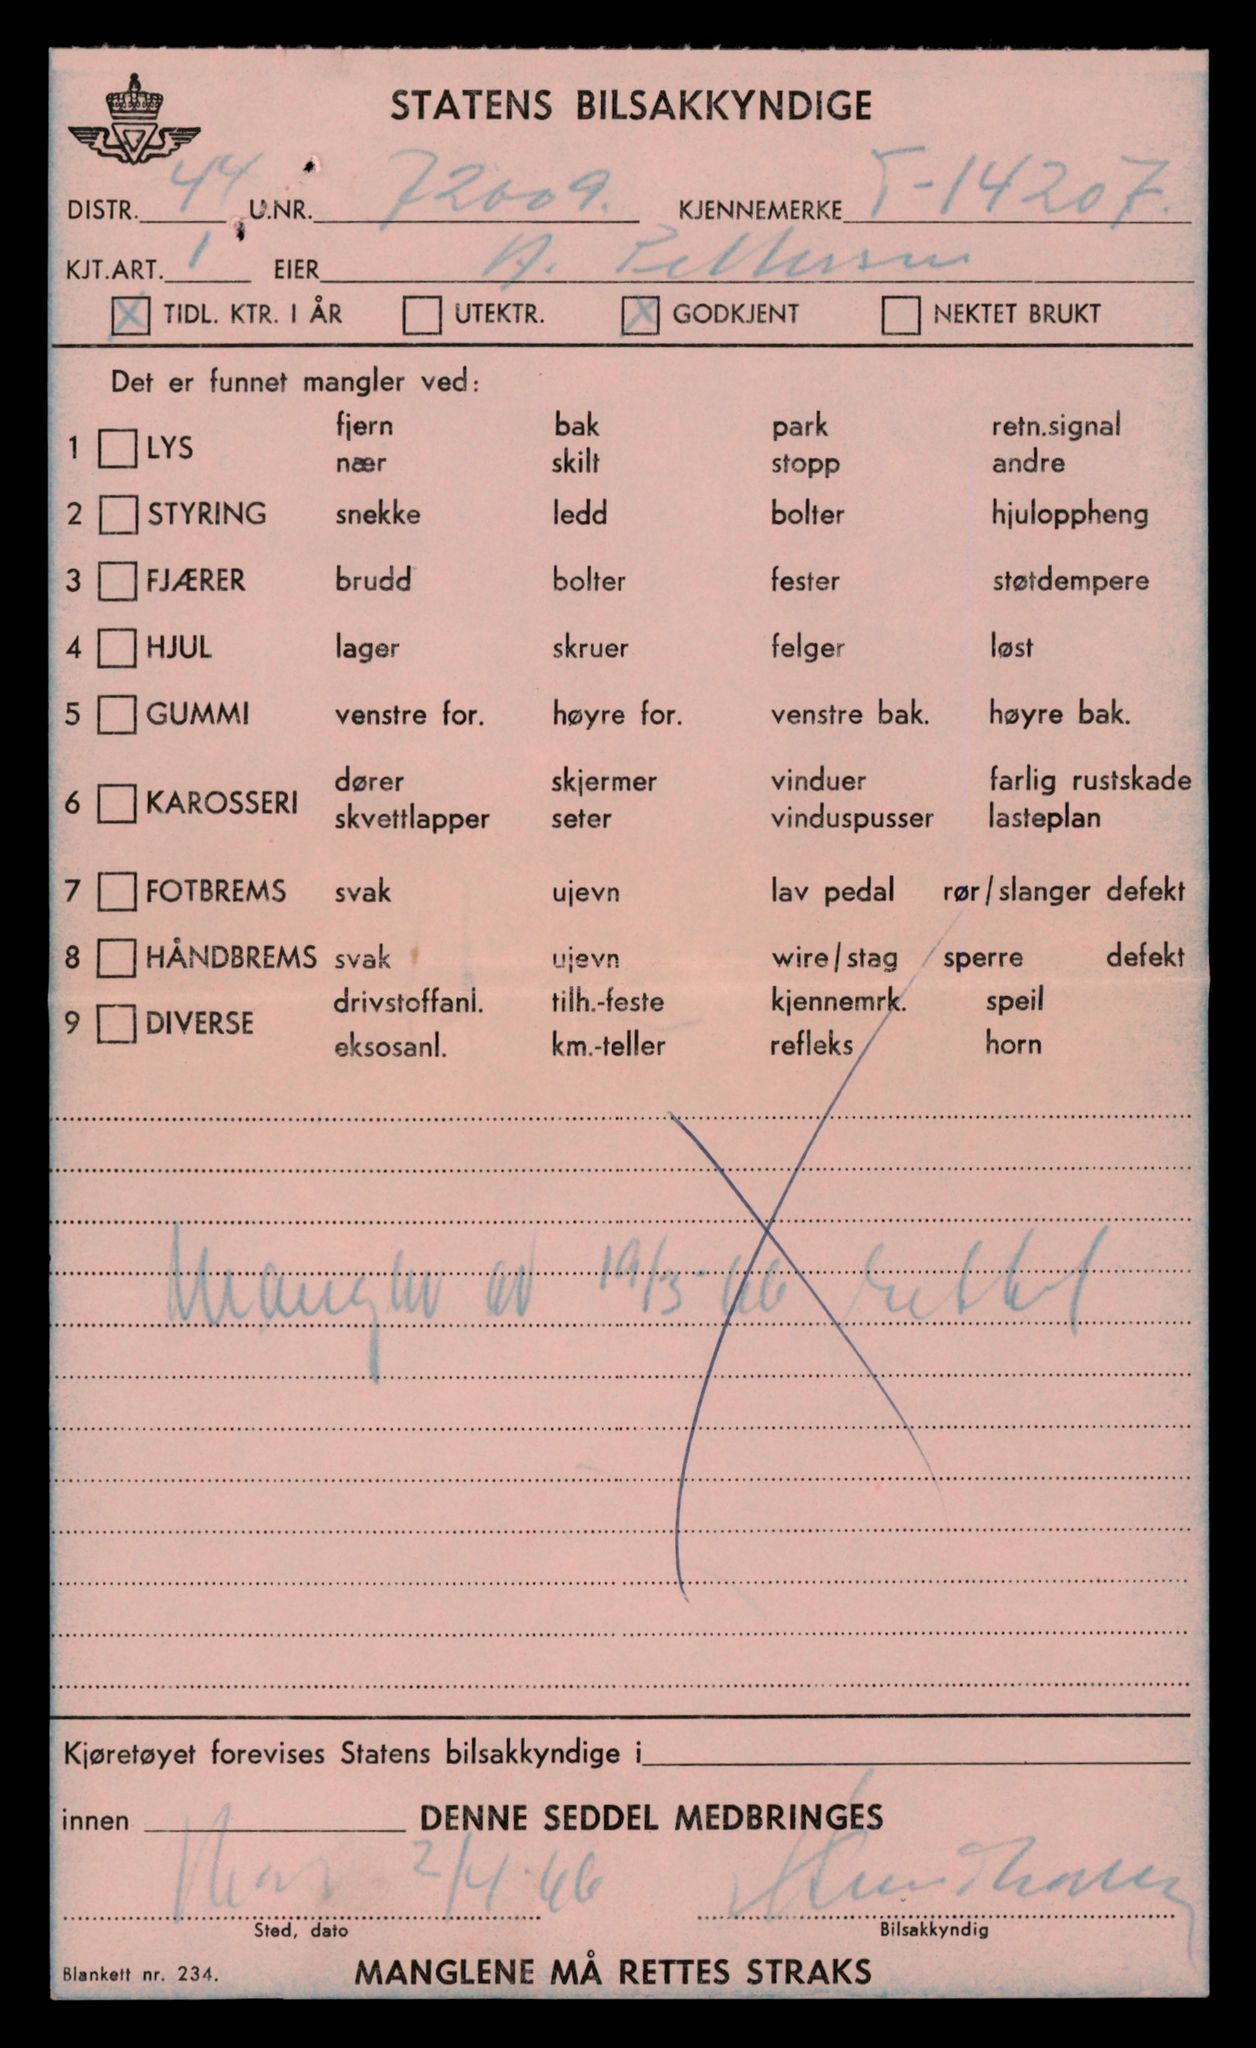 STATENS BILSAKKYNDIGE
DISTR. 44 U.NR. 72009. KJENNEMERKE T-14207.
KJT.ART. 1 EIER A. Pettersen
X TIDL. KTR. I ÅR UTEKTR. X GODKJENT NEKTET BRUKT
Det er funnet mangler ved:
fjern bak park retn.signal
1 LYS
nær skilt stopp andre
2 STYRING snekke ledd bolter hjuloppheng
3 FJÆRER brudd bolter fester støtdempere
4 HJUL lager skruer felger løst
5 GUMMI venstre for. høyre for. venstre bak. høyre bak.
dører skjermer vinduer farlig rustskade
6 KAROSSERI
skvettlapper seter vinduspusser lasteplan
7 FOTBREMS svak ujevn lav pedal rør/slanger defekt
8 HÅNDBREMS svak ujevn wire/stag sperre defekt
drivstoffanl. tilh.-feste kjennemrk. speil
9 DIVERSE
eksosanl. km.-teller refleks horn
Mangler av 19/3-66 rettet
Kjøretøyet forevises Statens bilsakkyndige i
innen DENNE SEDDEL MEDBRINGES
2/4-66
Sted, dato Bilsakkyndig
Blankett nr. 234. MANGLENE MÅ RETTES STRAKS